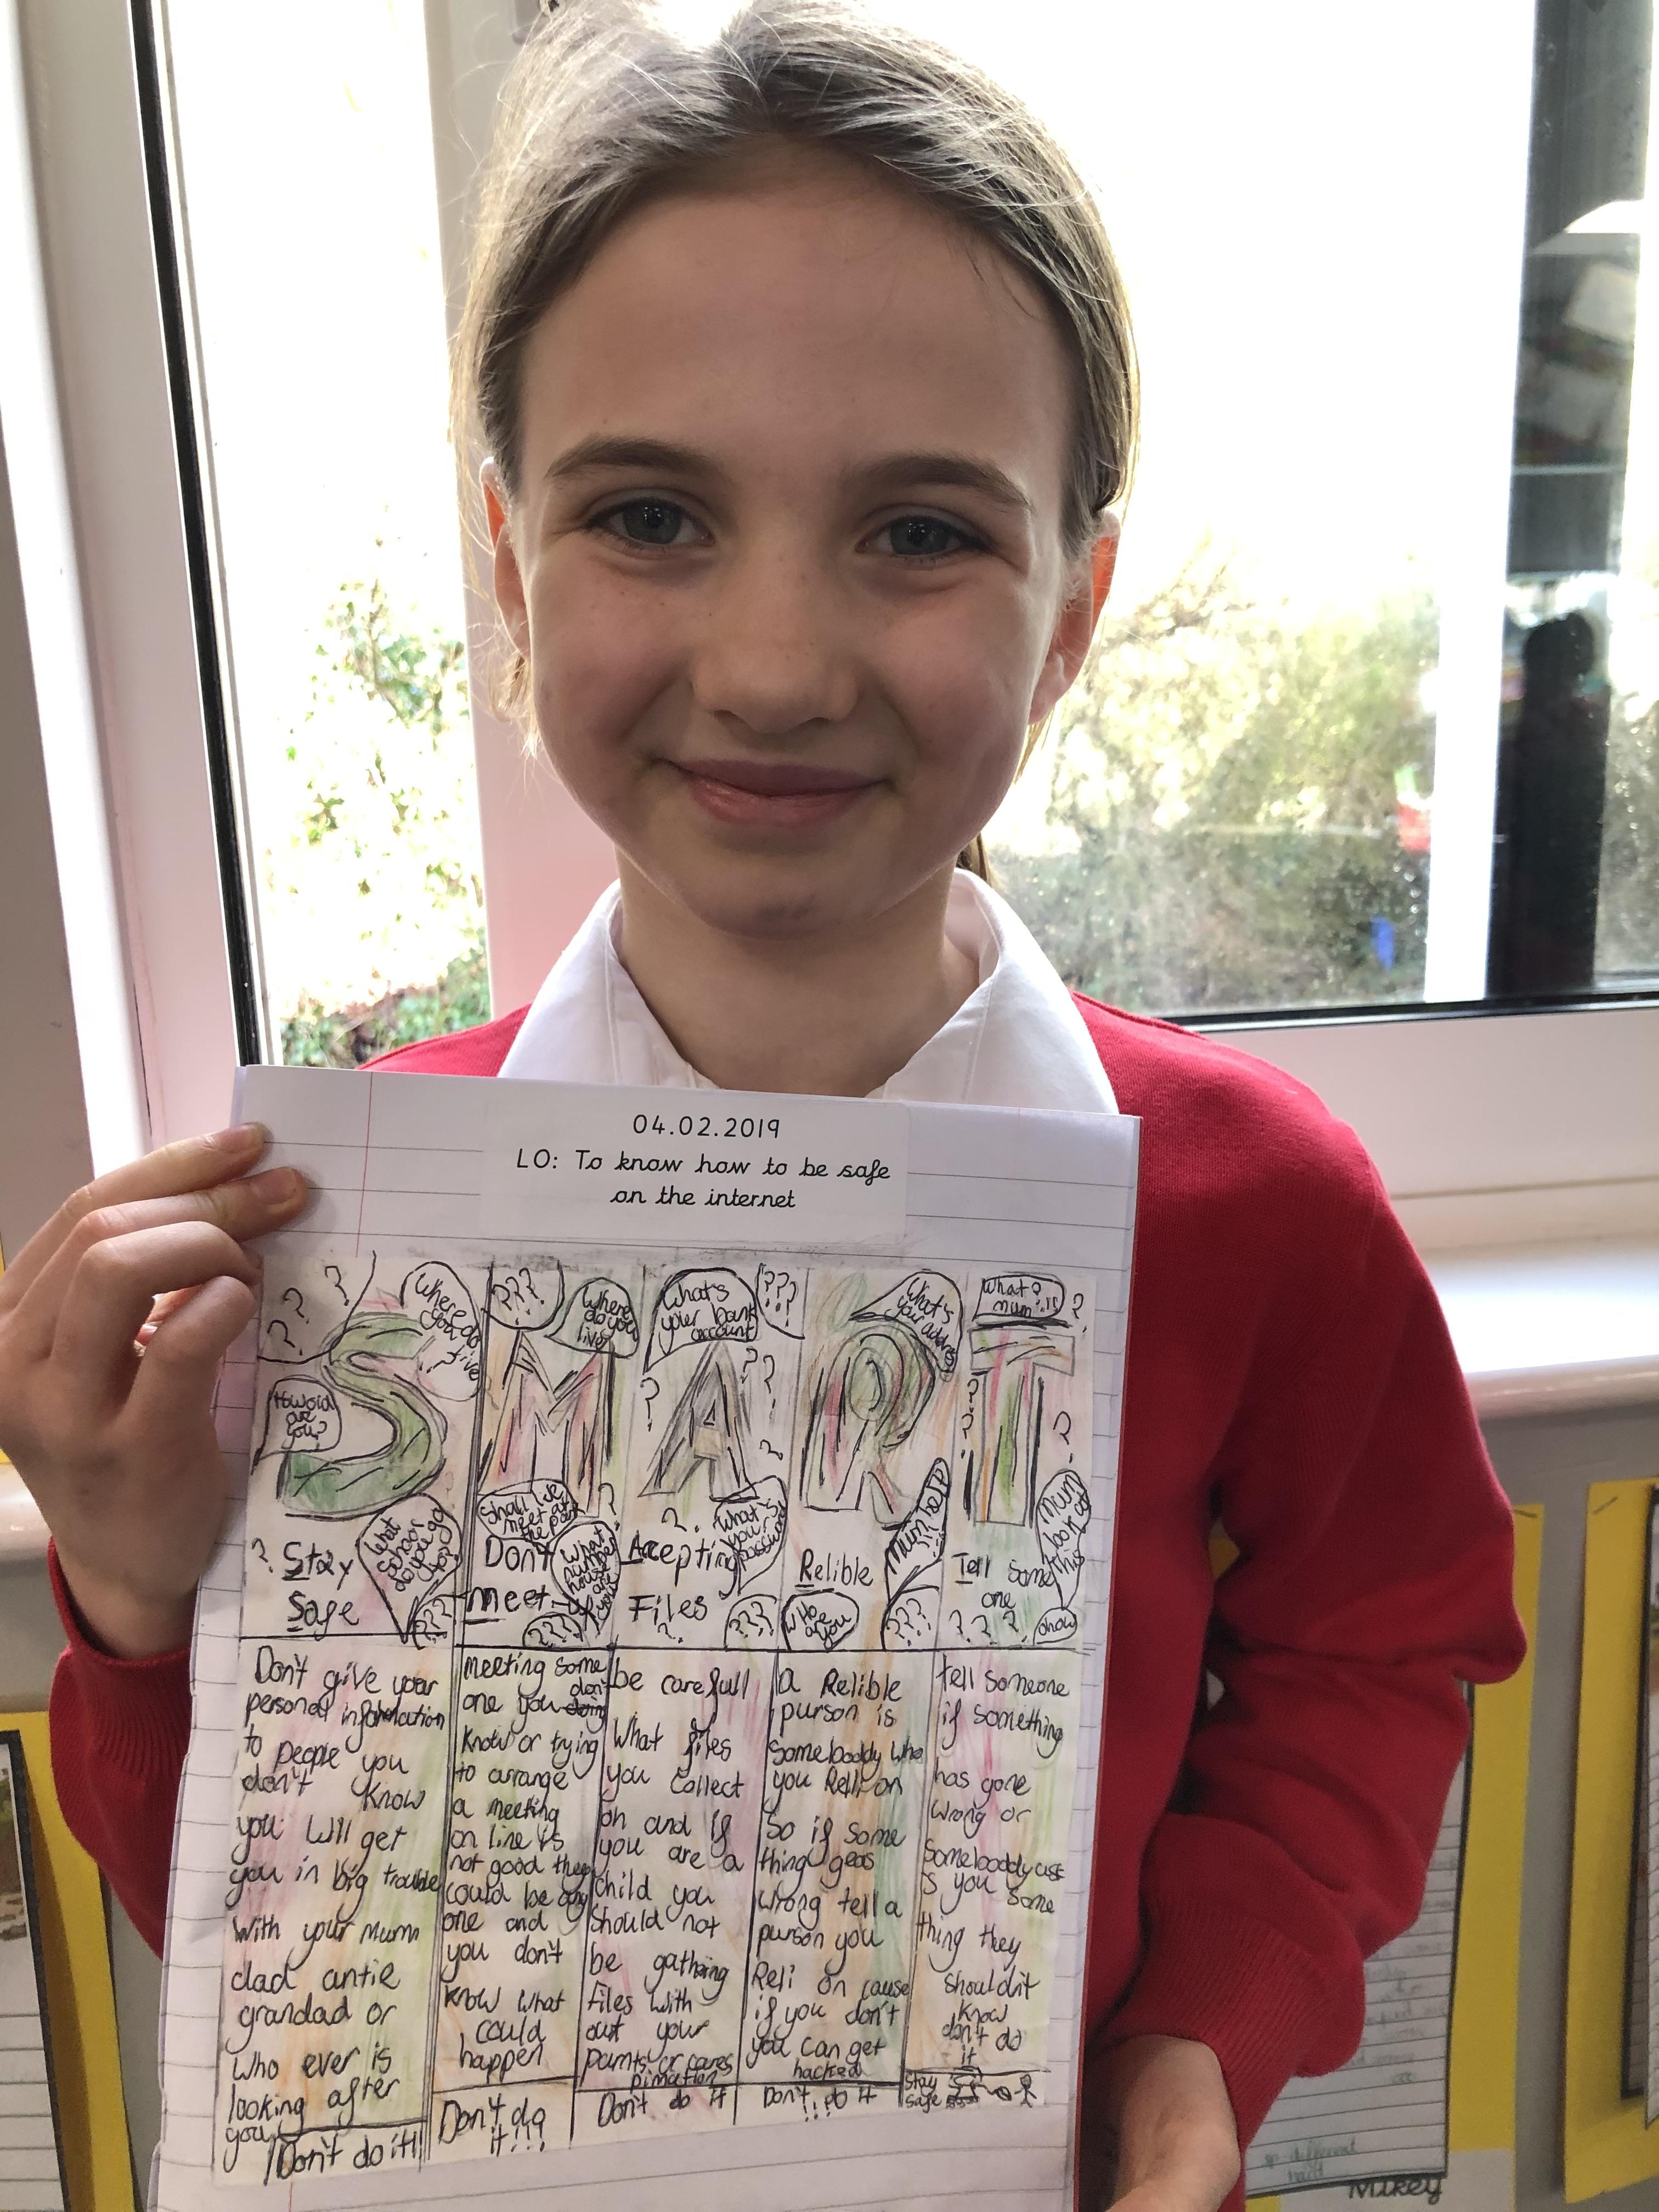 04.02.2019
LO: To know how to be safe
on the internet
? ? ?
Where do
you
live
How old
are
you?
What
school
do you go
to?
S
? Stay
Safe
???
???
Where
do you
live
M
Shall we
meet at
the park
Don't
meet
What
number
house
are
you
????
What's
your bank
account
???
A
What's
your
password
Accepting
Files
???
What's
your address
R
Mum help
Relible
Who
are
you
???
What?
mum!!!
T
Mum
look at
this
Tell some
one
? ? ?
Don't give your
personal information
to people you
don't know
you will get
you in big trouble
With your mum
dad antie
grandad or
Who ever is
looking after
you
Don't do it!!
meeting some
one you don't
know or trying
to arrange
a meeting
on line is
not good they
could be any
one and
you don't
know what
could
happen
Don't do
it!!!
be carefull
What files
you collect
on and if
you are a
child you
should not
be gathring
files with
out your
parnts or cares
Don't do it
a Relible
purson is
somebooddy who
you Reli on
So if some
thing goas
wrong tell a
purson you
Reli on cause
if you don't
you can get
hacked
Don't do it
!!!
tell someone
if something
has gone
wrong or
somebooddy ass
s you some
thing they
shouldn't
know
don't do
it
Stay
safe
Mikey